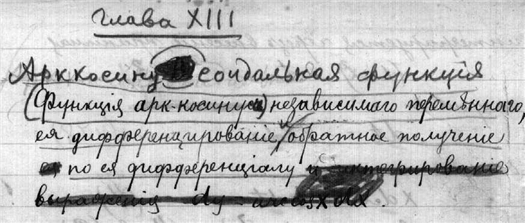 Глава XIII
Арккосинусоидальная функція
(Функція арк-косинуса) независимаго перемѣннаго,
ея дифференцирование, обратное получение
по ея дифференциалу и интегрирование
выражения dy = arccosxdx.